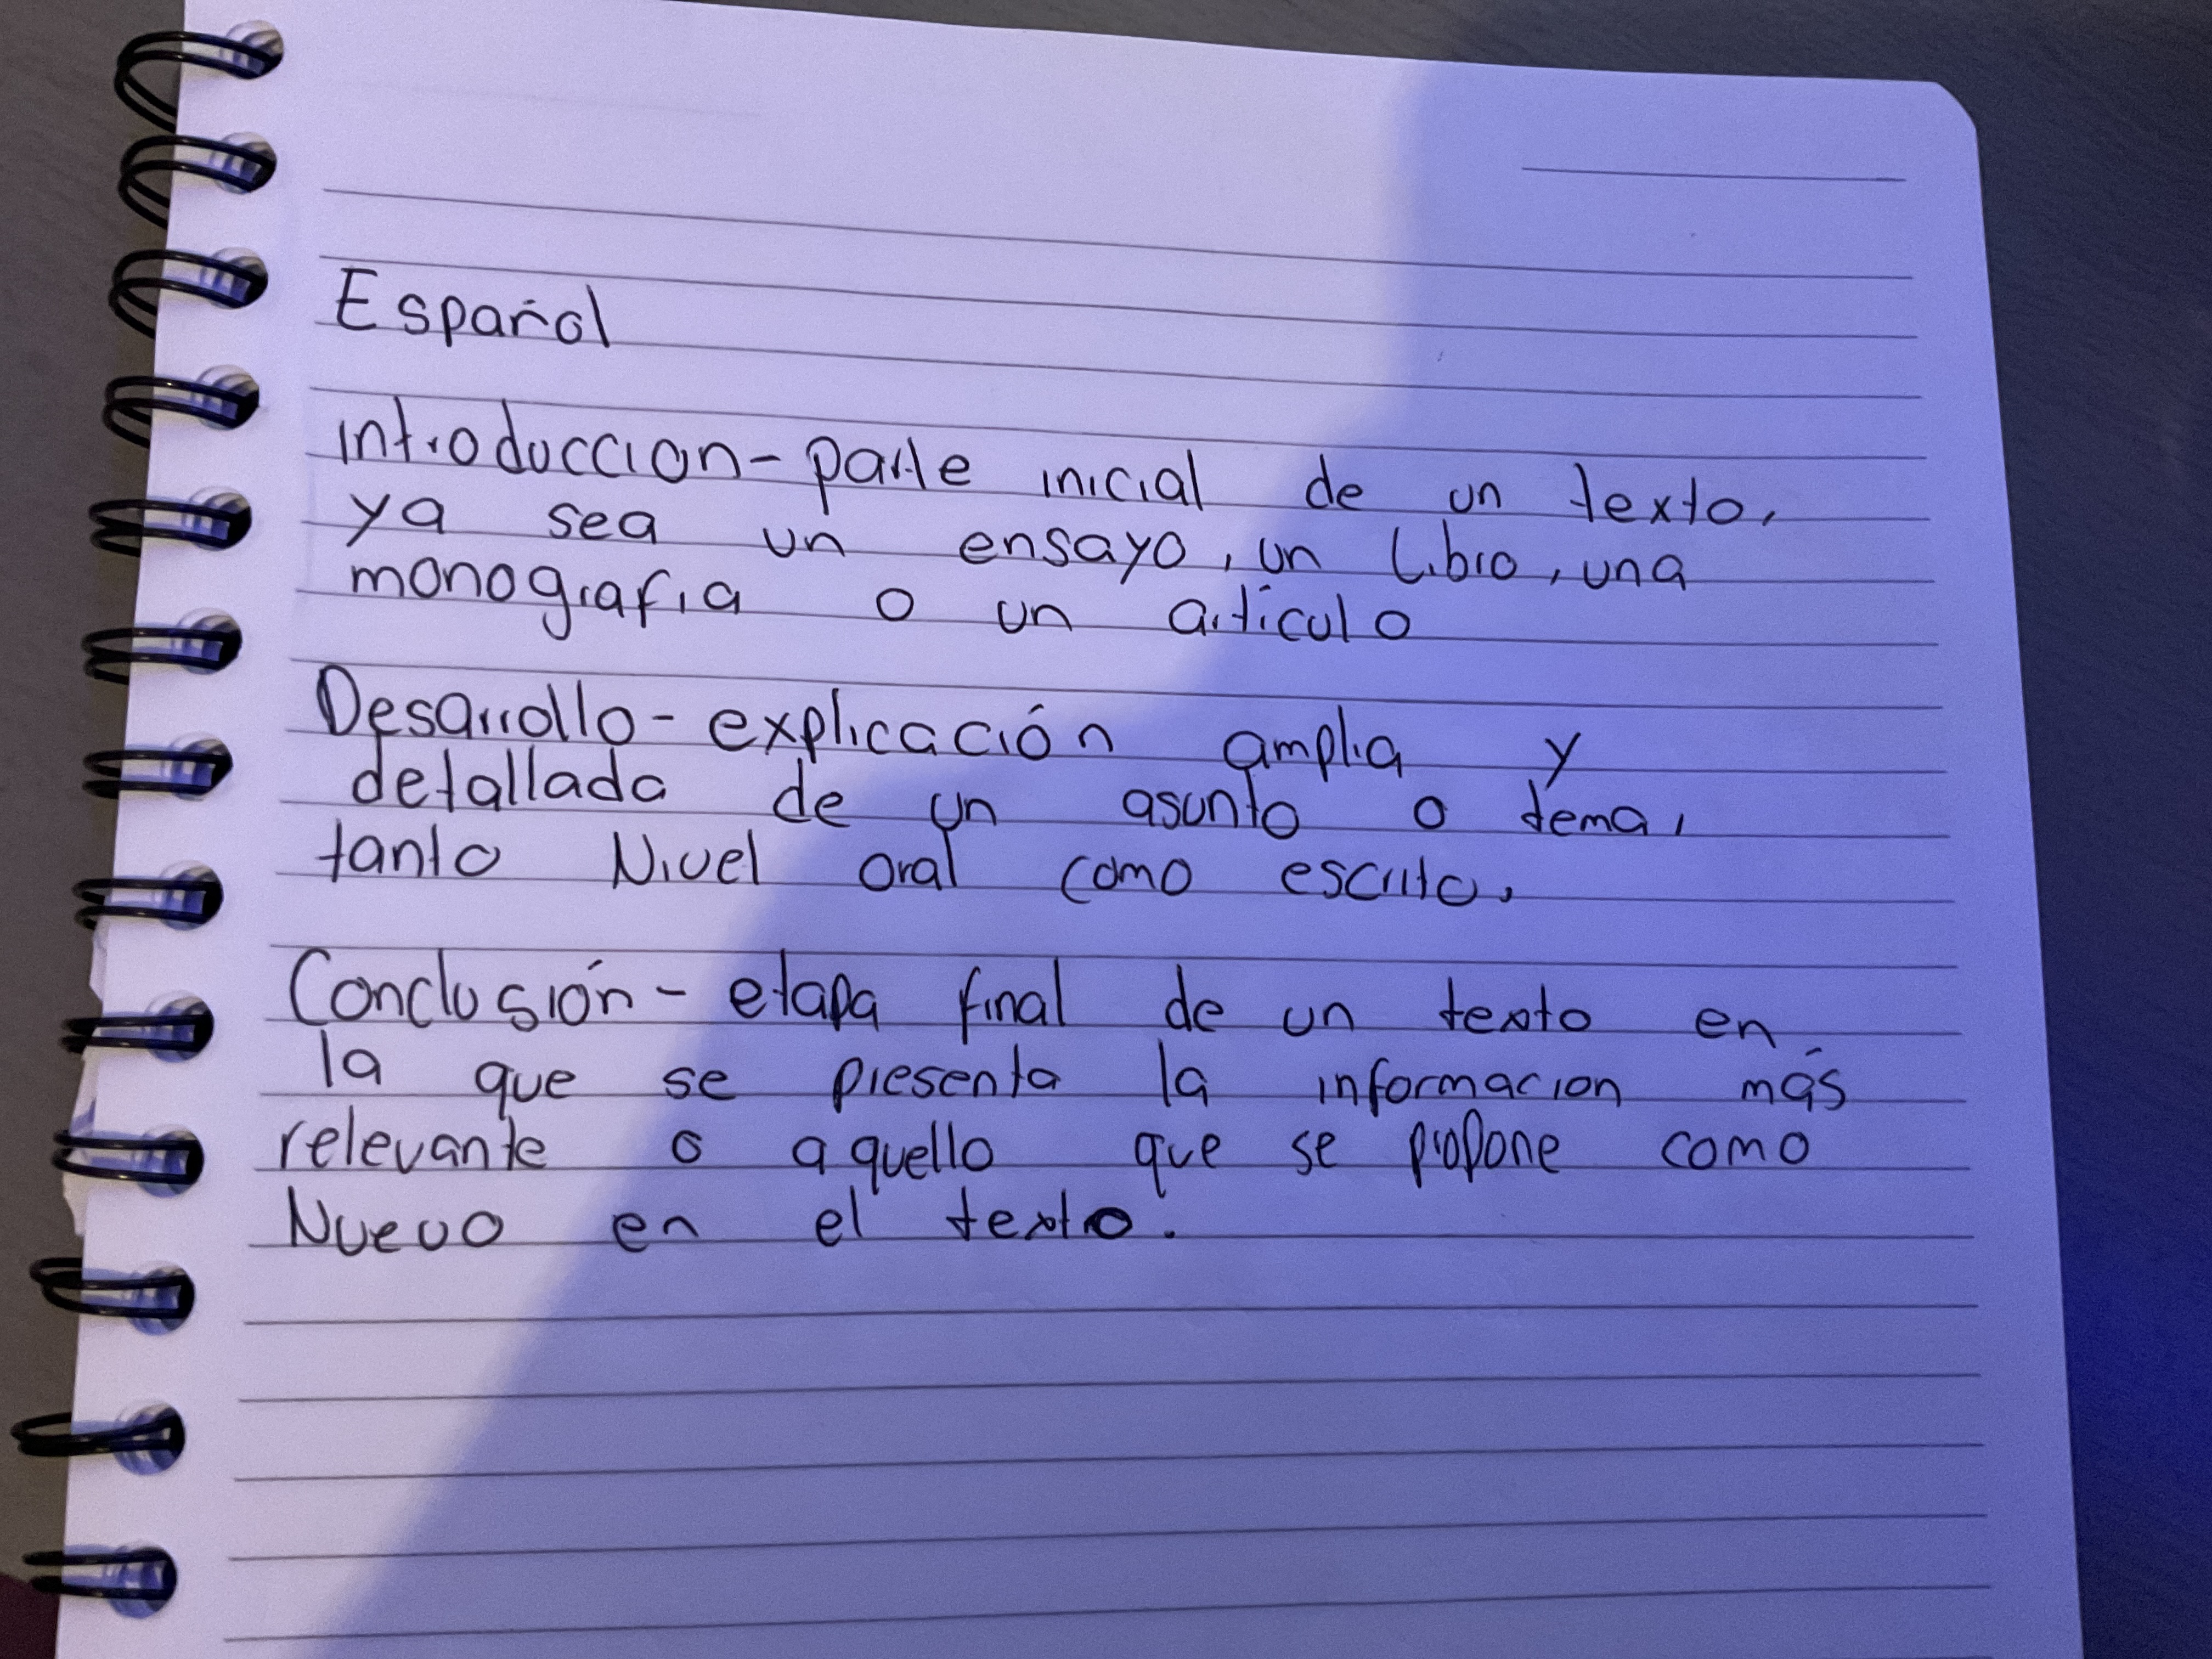 Español
introduccion - parte inicial de un texto,
ya sea un ensayo, un libro, una
monografia o un artículo
Desarrollo - explicación amplia y
detallada de un asunto o tema,
tanto Nivel oral como escrito.
Conclusión - etapa final de un texto en
la que se presenta la informacion más
relevante o aquello que se propone como
Nuevo en el texto.